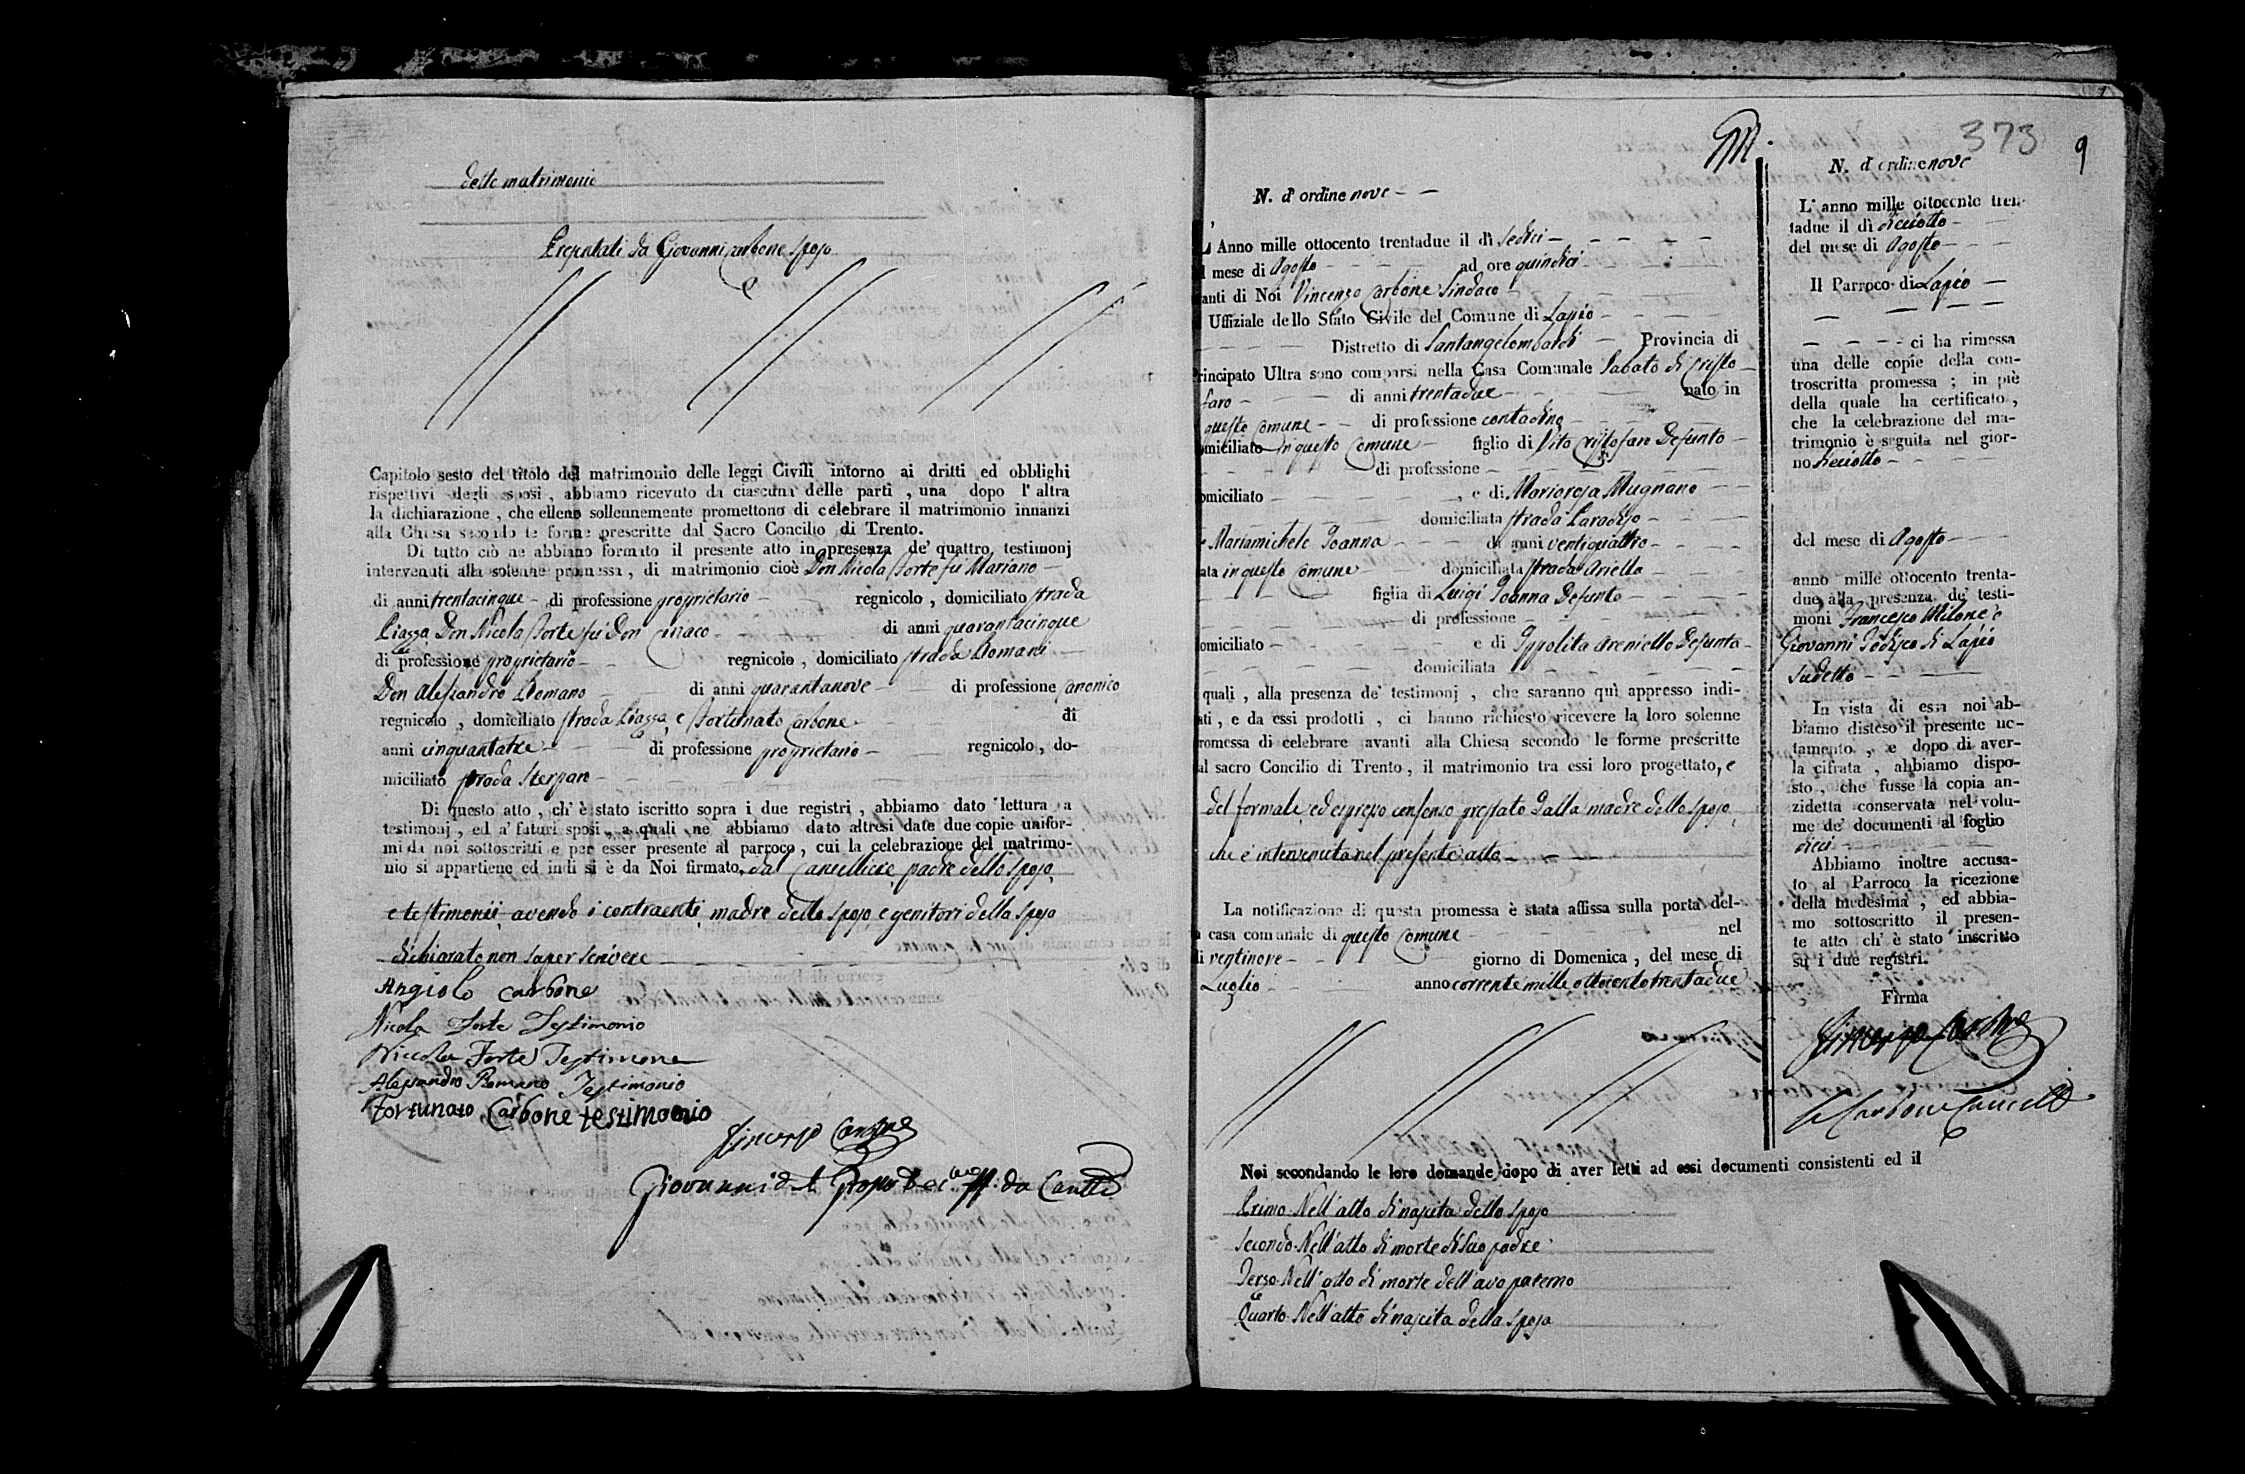 delle matrimonio
Presentati da Giovanni Carbone sposo
Capitolo sesto del titolo del matrimonio delle leggi Civili intorno ai dritti ed obblighi
rispettivi degli sposi, abbiamo ricevuto da ciascuna delle parti, una dopo l'altra
la dichiarazione, che elleno sollennemente promettono di celebrare il matrimonio innanzi
alla Chiesa secondo le forme prescritte dal Sacro Concilio di Trento.
Di tutto ciò ne abbiamo formato il presente atto in presenza de' quattro testimonj
intervenuti alla solenne promessa, di matrimonio cioè Don Nicola Forte fù Mariano
di anni trentacinque di professione proprietario regnicolo, domiciliato strada
Piazza Don Nicola Forte fù Don Ciriaco di anni quarantacinque
di professione proprietario regnicolo, domiciliato strada Romani
Don Alessandro Romano di anni quarantanove di professione canonico
regnicolo, domiciliato strada Piazza, e Fortunato Carbone di
anni cinquantatre di professione proprietario regnicolo, do-
miciliato strada Sterpara
Di questo atto, ch' è stato iscritto sopra i due registri, abbiamo dato lettura a
testimonj, ed a' futuri sposi, a quali ne abbiamo dato altresì date due copie unifor-
mi da noi sottoscritti e per esser presente al parroco, cui la celebrazione del matrimo-
nio si appartiene ed indi si è da Noi firmato, dal Cancelliere, padre dello sposo,
e testimonii, avendo i contraenti, madre dello sposo, e genitori della sposa
dichiarato non saper scrivere
Angiolo Carbone
Nicola Forte Testimonio
Niccola Forte Testimone
Alessandro Romano Testimonio
Fortunato Carbone testimonio
Vincenzo Carbone
Giovanni del
M.
373
9
N. d' ordine nove
L' Anno mille ottocento trentadue il dì sedici
l mese di Agosto ad ore quindici
anti di Noi Vincenzo Carbone Sindaco
Uffiziale dello Stato Civile del Comune di Lapio
Distretto di Santangelombardi Provincia di
rincipato Ultra sono comparsi nella Casa Comunale Sabato di Cristo
faro di anni trentadue nato in
questo Comune di professione contadino
omiciliato in questo Comune figlio di Vito Cristofaro Defunto
di professione
omiciliato, e di Mariarosa Mugnano
domiciliata strada Paradiso
e Mariamichele Joanna di anni ventiquattro
ata in questo Comune domiciliata strada Ariella
figlia di Luigi Joanna Defunto
di professione
omiciliato e di Ippolita Areniello Defunta
domiciliata
quali, alla presenza de' testimonj, che saranno quì appresso indi-
ati, e da essi prodotti, ci hanno richiesto ricevere la loro solenne
romessa di celebrare avanti alla Chiesa secondo le forme prescritte
al sacro Concilio di Trento, il matrimonio tra essi loro progettato, e
del formale ed espresso consenso prestato dalla madre dello sposo,
che è intervenuta nel presente atto
La notificazione di questa promessa è stata affissa sulla porta del-
a casa comunale di questo Comune nel
i ventinove giorno di Domenica, del mese di
Luglio anno corrente mille ottocento trentadue
Noi secondando le loro domande dopo di aver letti ad essi documenti consistenti ed il
Primo Nell' atto di nascita dello sposo
Secondo Nell' atto di morte di suo padre
Terzo Nell' atto di morte dell' avo paterno
Quarto Nell' atto di nascita della sposa
N. d' ordine nove
L' anno mille ottocento tren-
tadue il dì diciotto
del mese di Agosto
Il Parroco di Lapio
ci ha rimessa
una delle copie della con-
troscritta promessa; in piè
della quale ha certificato,
che la celebrazione del ma-
trimonio è seguita nel gior-
no diciotto
del mese di Agosto
anno mille ottocento trenta-
due alla presenza de' testi-
moni Francesco Milone e
Giovanni Todisco di Lapio
sudetto
In vista di essa noi ab-
biamo disteso il presente no-
tamento, e dopo di aver-
la cifrata, abbiamo dispo-
sto, che fusse la copia an-
zidetta conservata nel volu-
me de' documenti al foglio
dieci
Abbiamo inoltre accusa-
to al Parroco la ricezione
della medesima, ed abbia-
mo sottoscritto il presen-
te atto ch' è stato inscritto
su i due registri.
Firma
Vincenzo Carbone